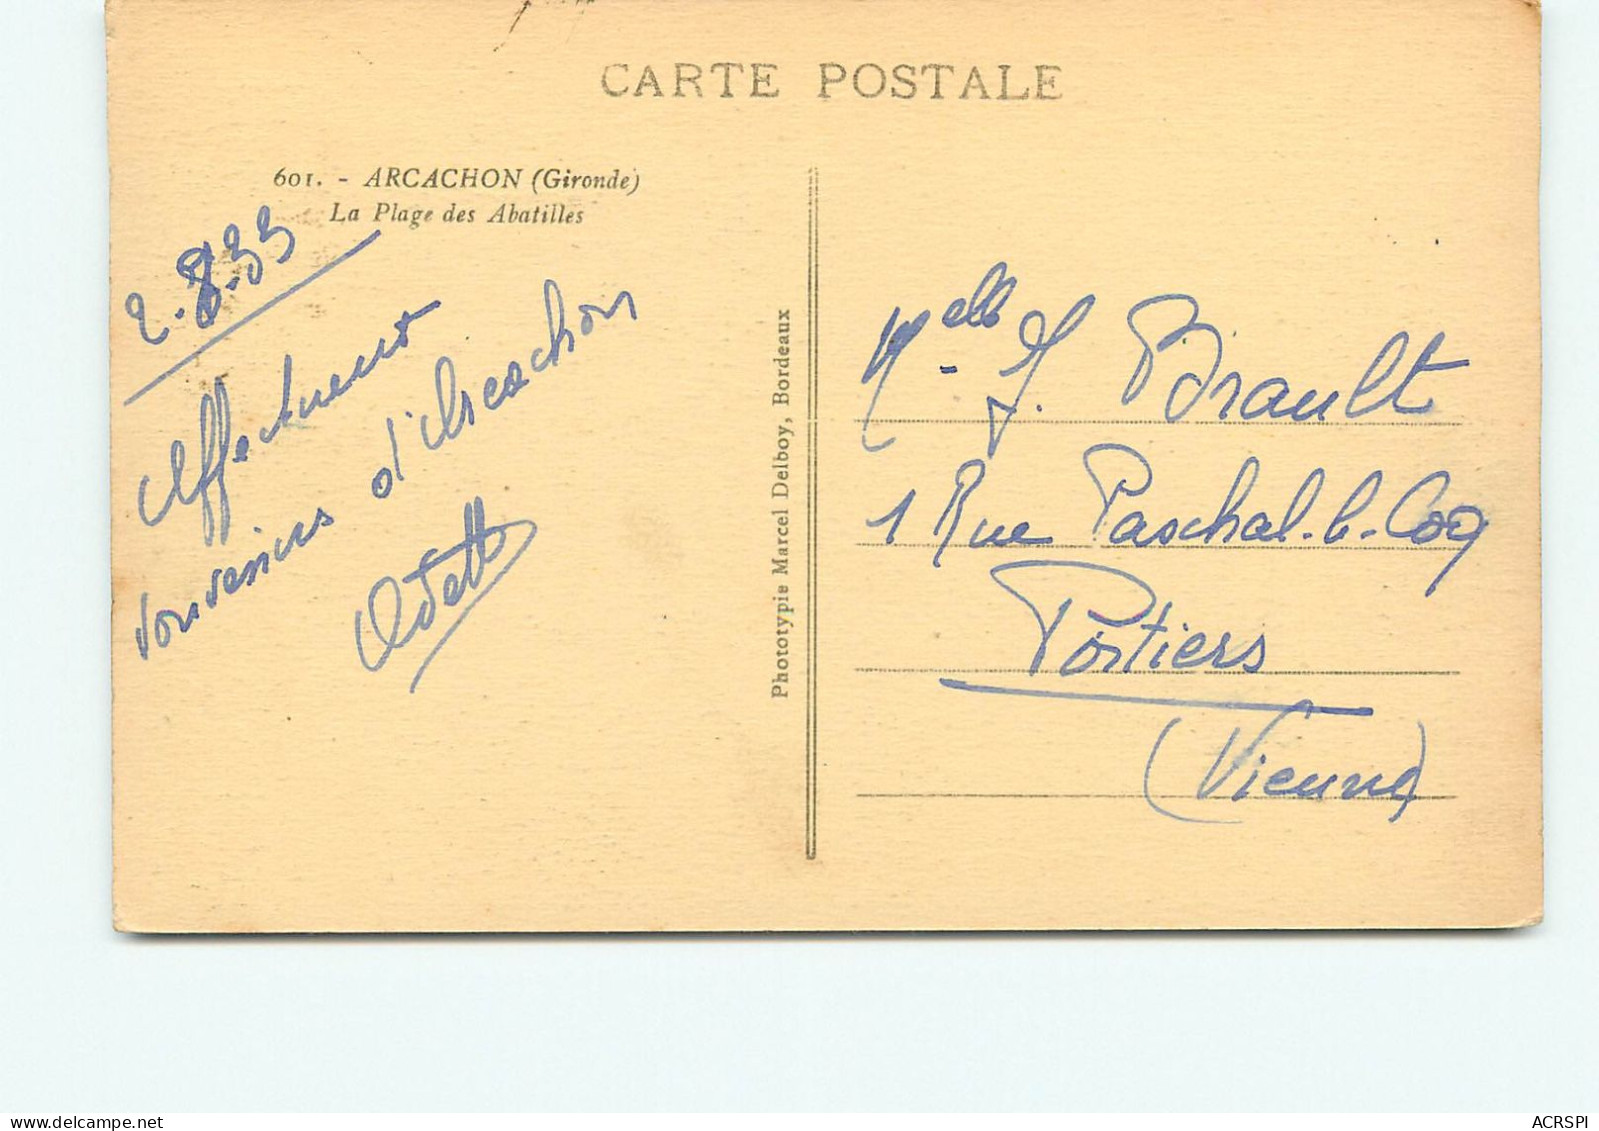 CARTE POSTALE
601. - ARCACHON (Gironde)
La Plage des Abatilles
2.8.33
Affectueux
souvenirs d'Arcachon
Odette
Phototypie Marcel Delboy, Bordeaux
Melle J. Brault
1 Rue Paschal-le-Coq
Poitiers
(Vienne)
ACRSPI